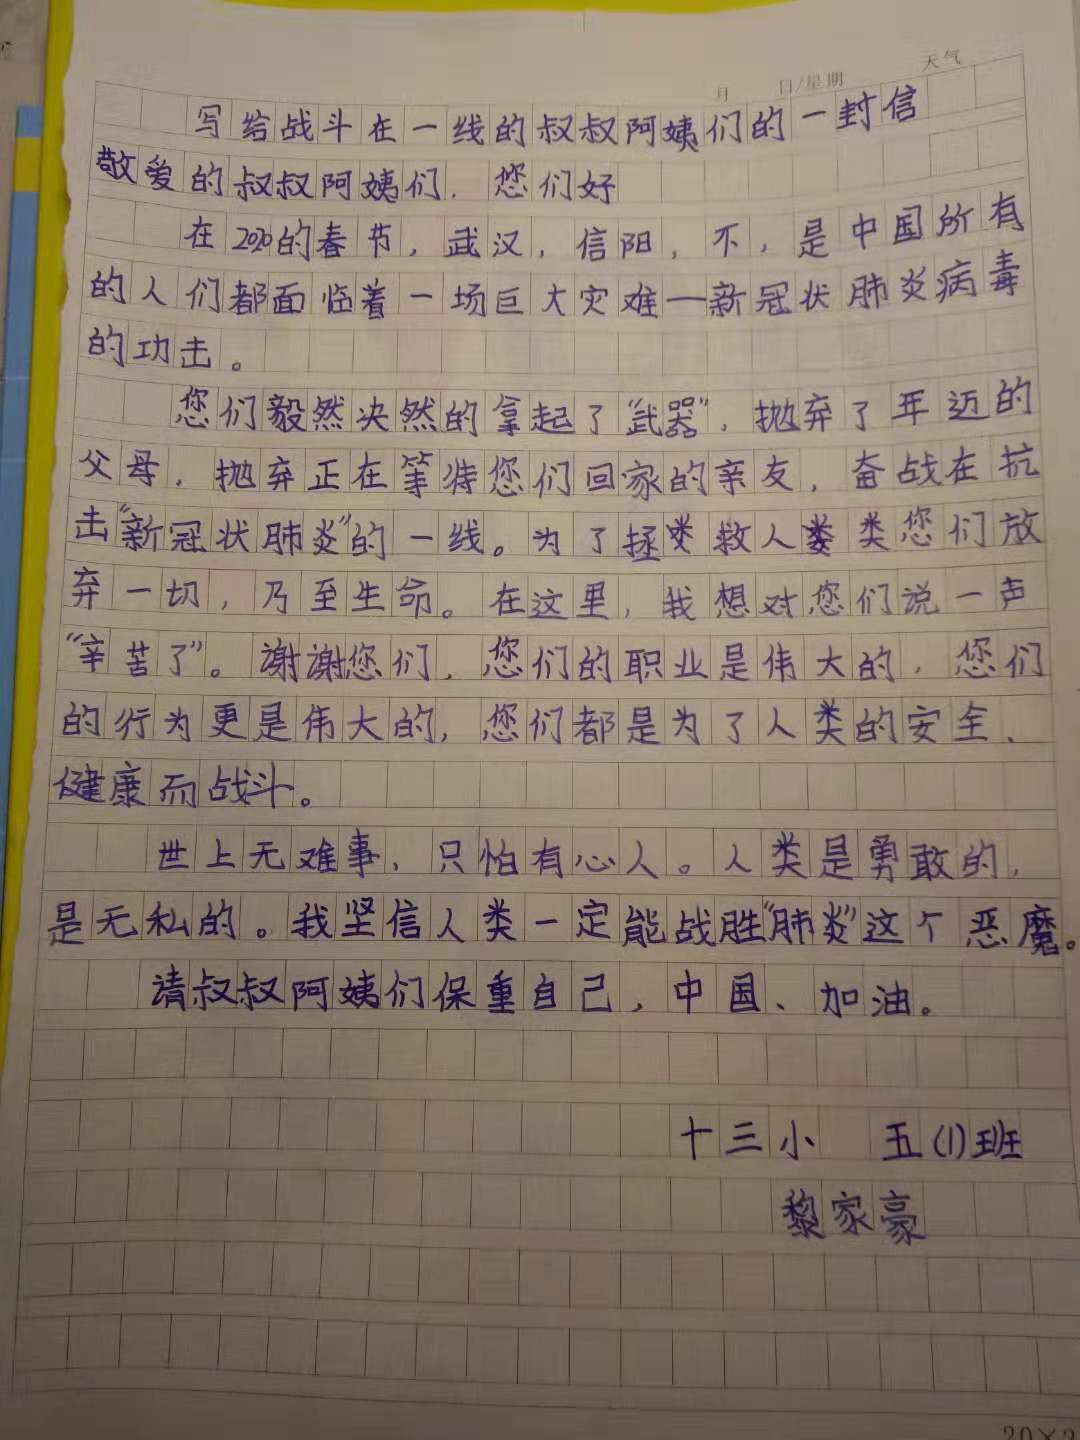 月 日/星期 天气
写给战斗在一线的叔叔阿姨们的一封信
敬爱的叔叔阿姨们.您们好
在2020的春节,武汉,信阳,不,是中国所有
的人们都面临着一场巨大灾难一新冠状肺炎病毒
的功击。
您们毅然决然的拿起了"武器",抛弃了年迈的
父母,抛弃正在等待您们回家的亲友,奋战在抗
击"新冠状肺炎"的一线。为了拯救人类您们放
弃一切,乃至生命。在这里,我想对您们说一声
"辛苦了"。谢谢您们,您们的职业是伟大的,您们
的行为更是伟大的,您们都是为了人类的安全、
健康而战斗。
世上无难事,只怕有心人。人类是勇敢的,
是无私的。我坚信人类一定能战胜"肺炎"这个恶魔。
请叔叔阿姨们保重自己,中国、加油。
十三小 五(1)班
黎家豪